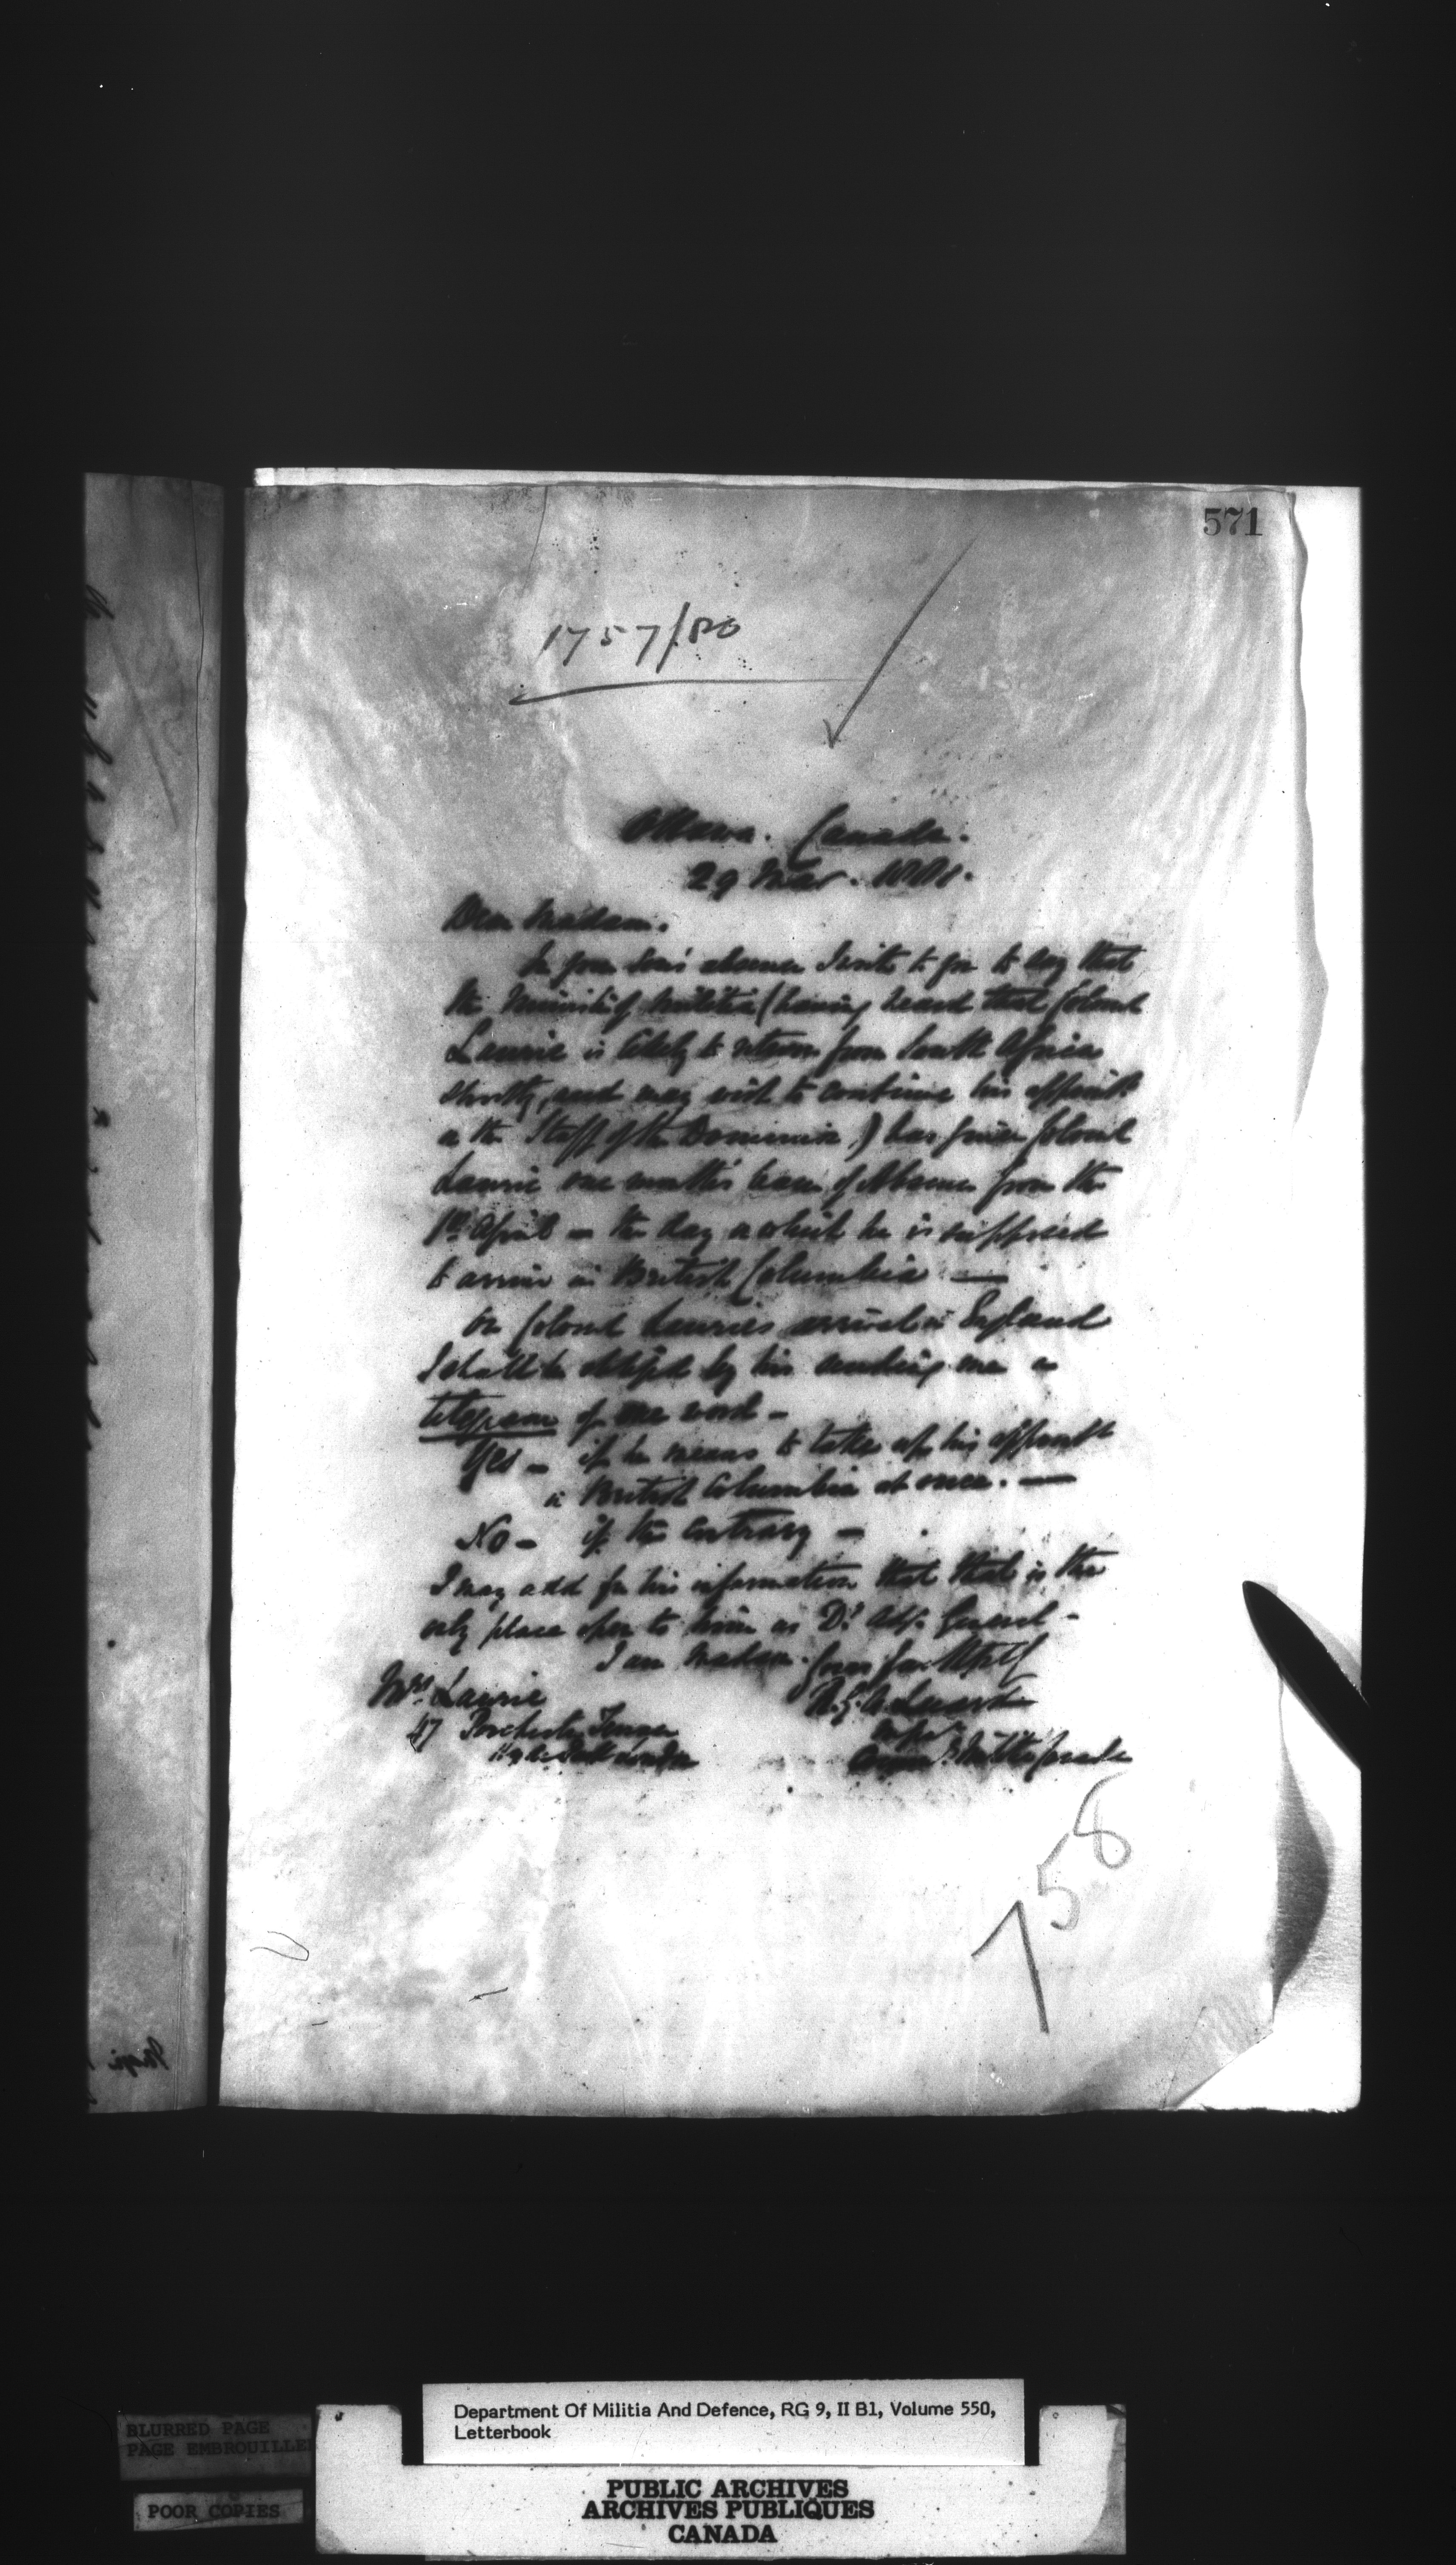 571
1757/80
Ottawa. Canada.
29 Mar. 1881.
Dear Madam.
In your son's absence I write to you to say that
the Minister of Militia (having heard that Colonel
Laurie is likely to return from South Africa
shortly, and may wish to continue his appointt
on the Staff of the Dominion,) has given Colonel
Laurie one month's leave of Absence from the
1st April – the day on which he is supposed
to arrive in British Columbia —
On Colonel Laurie's arrival in England
I shall be obliged by his sending me a
telegram of one word –
Yes – if he means to take up his appointt
in British Columbia at once. —
No – if the contrary –
I may add for his information that that is the
only place open to him as Dy Adj. General –
I am Madam. Yours faithfully
Mrs Laurie
R. G. A. Luard
47 Porchester Terrace
Hyde Park London
Comm. Militia Canada
758
Department Of Militia And Defence, RG 9, II B1, Volume 550,
Letterbook
BLURRED PAGE
PAGE EMBROUILLEE
POOR COPIES
PUBLIC ARCHIVES
ARCHIVES PUBLIQUES
CANADA